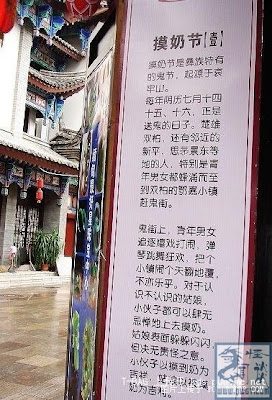 摸奶节【壹】
摸奶节是彝族特有
的鬼节，起源于哀
牢山。
每年阴历七月十四
十五、十六，正是
送鬼的日子。楚雄
双柏，还有邻近的
新平，思茅景东等
地的人，特别是青
年男女都蜂涌而至
到双柏的鄂嘉小镇
赶鬼街。
鬼街上，青年男女
追逐嬉戏打闹，弹
琴跳舞狂欢，把个
小镇闹个天翻地覆，
不亦乐乎。对于认
识不认识的姑娘，
小伙子都可以肆无
忌惮地上去摸奶。
姑娘表面躲躲闪闪，
但决无责怪之意。
小伙子以摸到奶为
吉祥，
奶为吉